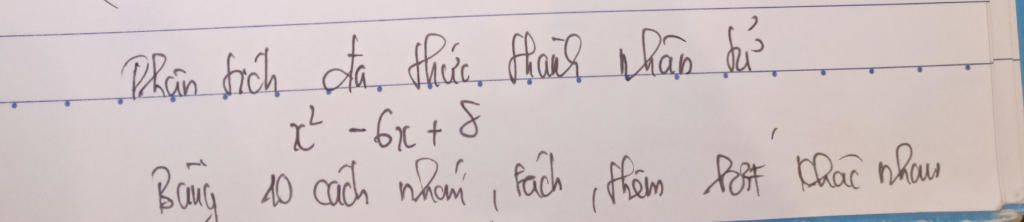 Phân tích đa thức thành nhân tử
x² - 6x + 8
Bằng 10 cách nhóm, tách, thêm bớt khác nhau